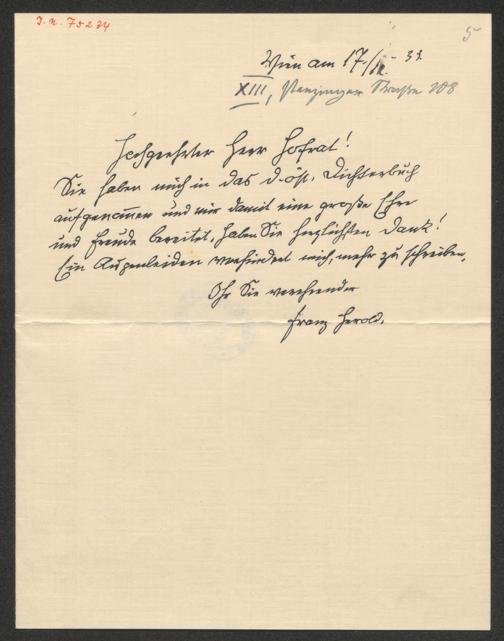 J.N. 75234
5
Wien am 17./IX. 33.
XIII, Penzinger Straße 108
Hochgeehrter Herr Hofrat!
Sie haben mich in das d.-öst. Dichterbuch
aufgenommen und mir damit eine große Ehre
und Freude bereitet. Haben Sie herzlichsten Dank!
Ein Augenleiden verhindert mich, mehr zu schreiben.
Ihr Sie verehrender
Franz Herold.